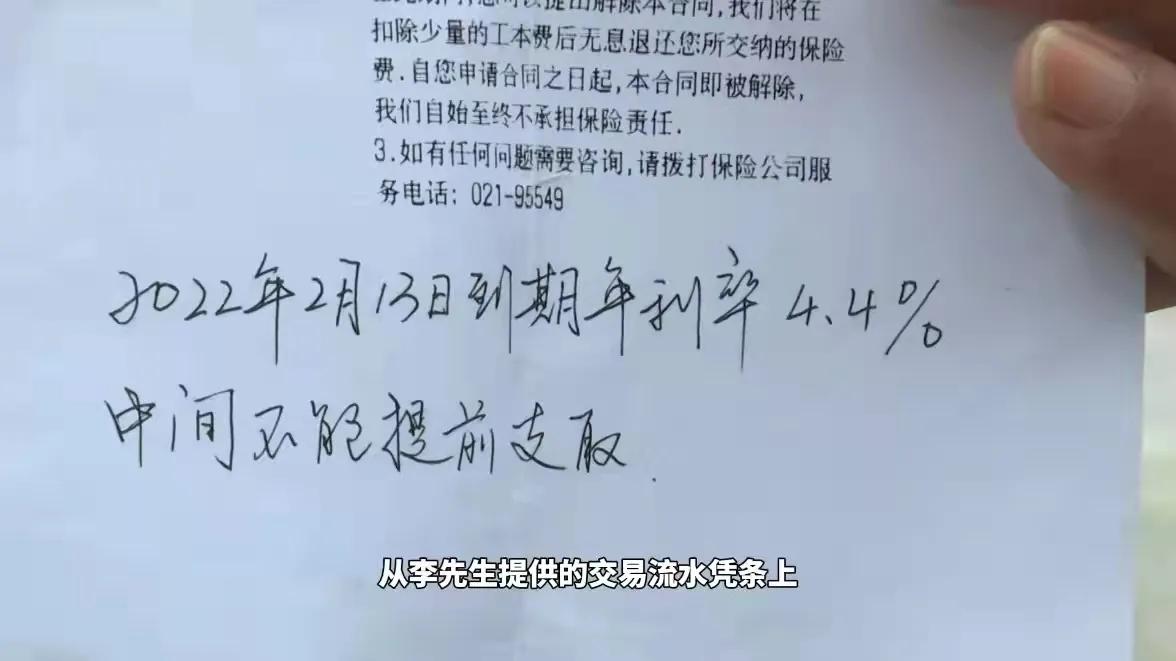 解除本合同,我们将在
扣除少量的工本费后无息退还您所交纳的保险
费.自您申请合同之日起,本合同即被解除,
我们自始至终不承担保险责任.
3.如有任何问题需要咨询,请拨打保险公司服
务电话: 021-95549
2022年2月13日到期年利率4.4%
中间不能提前支取.
从李先生提供的交易流水凭条上